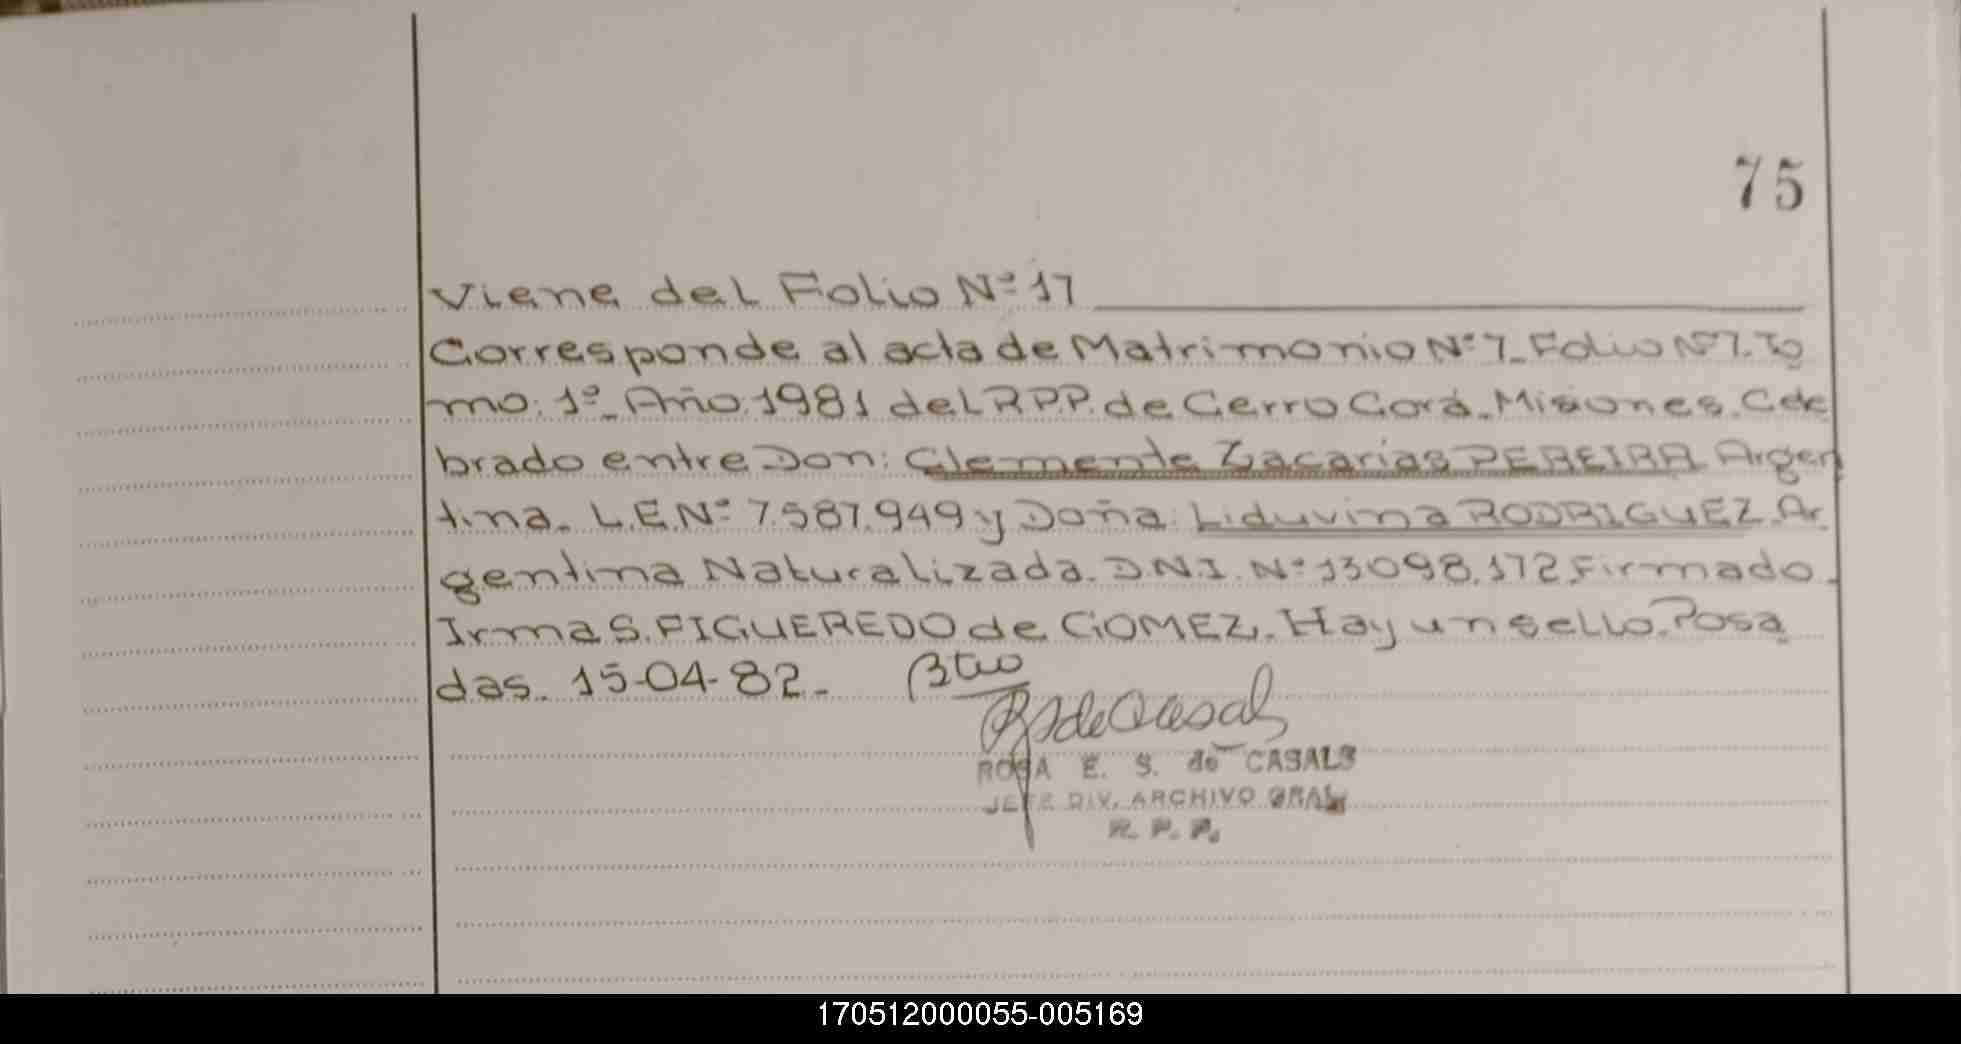 75
Viene del Folio Nº 17
Corresponde al acta de Matrimonio Nº 7. Folio Nº 7. To
mo: 1º. Año. 1981 del R.P.P. de Cerro Corá. Misiones. Cele
brado entre Don: Clemente Zacarias PEREIRA Argen
tina. L.E. Nº 7.587.949 y Doña: Liduvina RODRIGUEZ. Ar
gentina Naturalizada. D.N.I. Nº 13098.172. Firmado.
Irma S. FIGUEREDO de GOMEZ. Hay un sello. Posa
das. 15-04-82.-
ROSA E. S. de CASALS
JEFE DIV. ARCHIVO GRAL.
R. P. P.
170512000055-005169